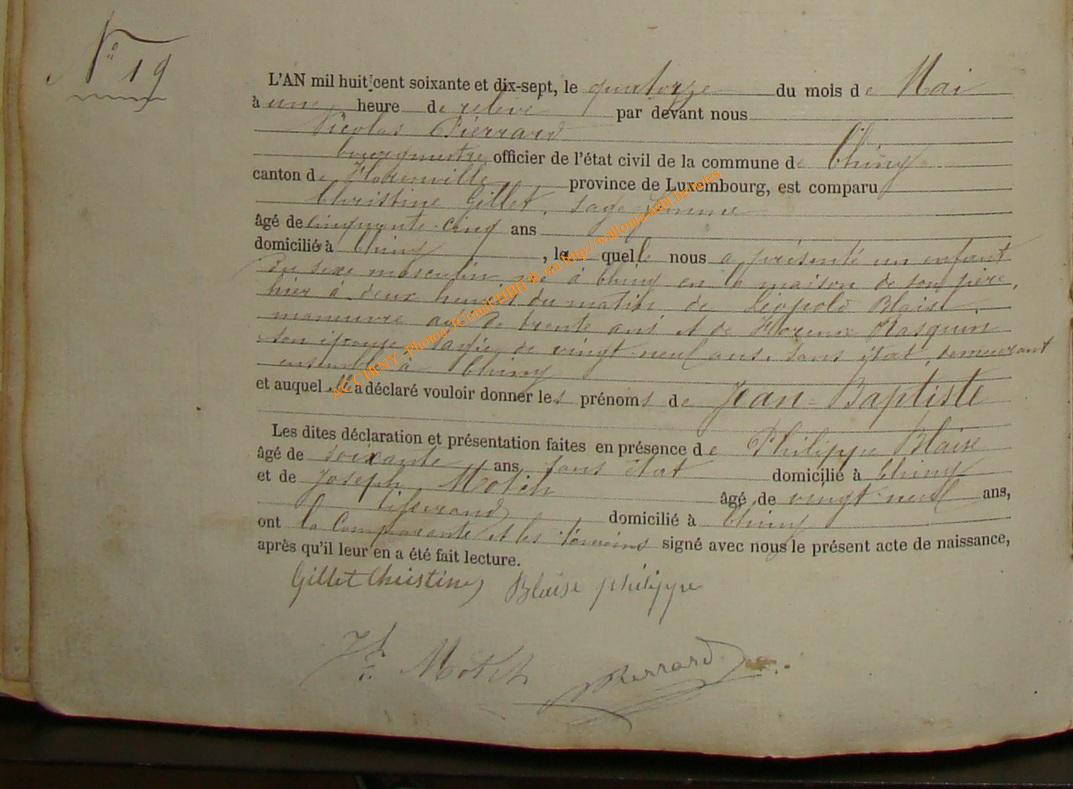 N° 19
L'AN mil huit cent soixante et dix-sept, le quatorze du mois de Mai
à une heure de relevé par devant nous
Nicolas Pierrard
bourgmestre officier de l'état civil de la commune de Chiny
canton de Florenville province de Luxembourg, est comparu
Christine Gillet, sage-femme
âgé de cinquante-cinq ans
domicilié à Chiny, le quelle nous a présenté un enfant
du sexe masculin né à Chiny en la maison de son père,
hier à deux heures du matin de Léopold Blaise
maneuvre agé de trente ans et de Florence Rasquin
son épouse agée de vingt neuf ans, sans état, demeurant
ensemble à Chiny
et auquel elle a déclaré vouloir donner les prénoms de Jean-Baptiste
Les dites déclaration et présentation faites en présence de Philippe Blaise
âgé de soixante ans, sans état domicilié à Chiny
et de Joseph Motch âgé de vingt-neuf ans,
tisserand domicilié à Chiny
ont la Comparante et les témoins signé avec nous le présent acte de naissance,
après qu'il leur en a été fait lecture.
Gillet Christine Blaise philippe
Jh Motch NPierrard